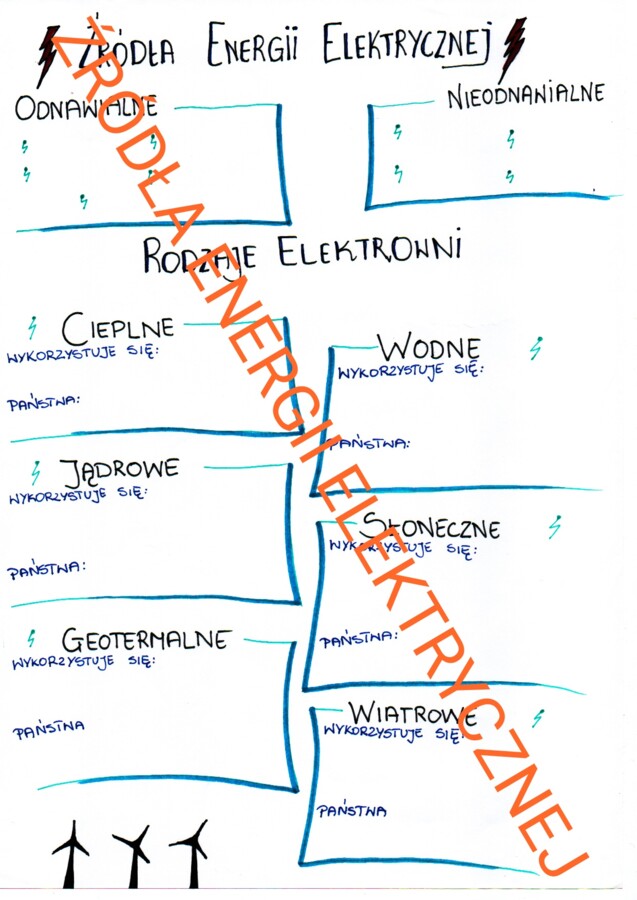 Źródła Energii Elektrycznej
Odnawialne
Nieodnawialne
Rodzaje Elektrowni
Cieplne
Wykorzystuje się:
Państwa:
Wodne
Wykorzystuje się:
Państwa:
Jądrowe
Wykorzystuje się:
Państwa:
Słoneczne
Wykorzystuje się:
Państwa:
Geotermalne
Wykorzystuje się:
Państwa
Wiatrowe
Wykorzystuje się:
Państwa
ŹRÓDŁA ENERGII ELEKTRYCZNEJ